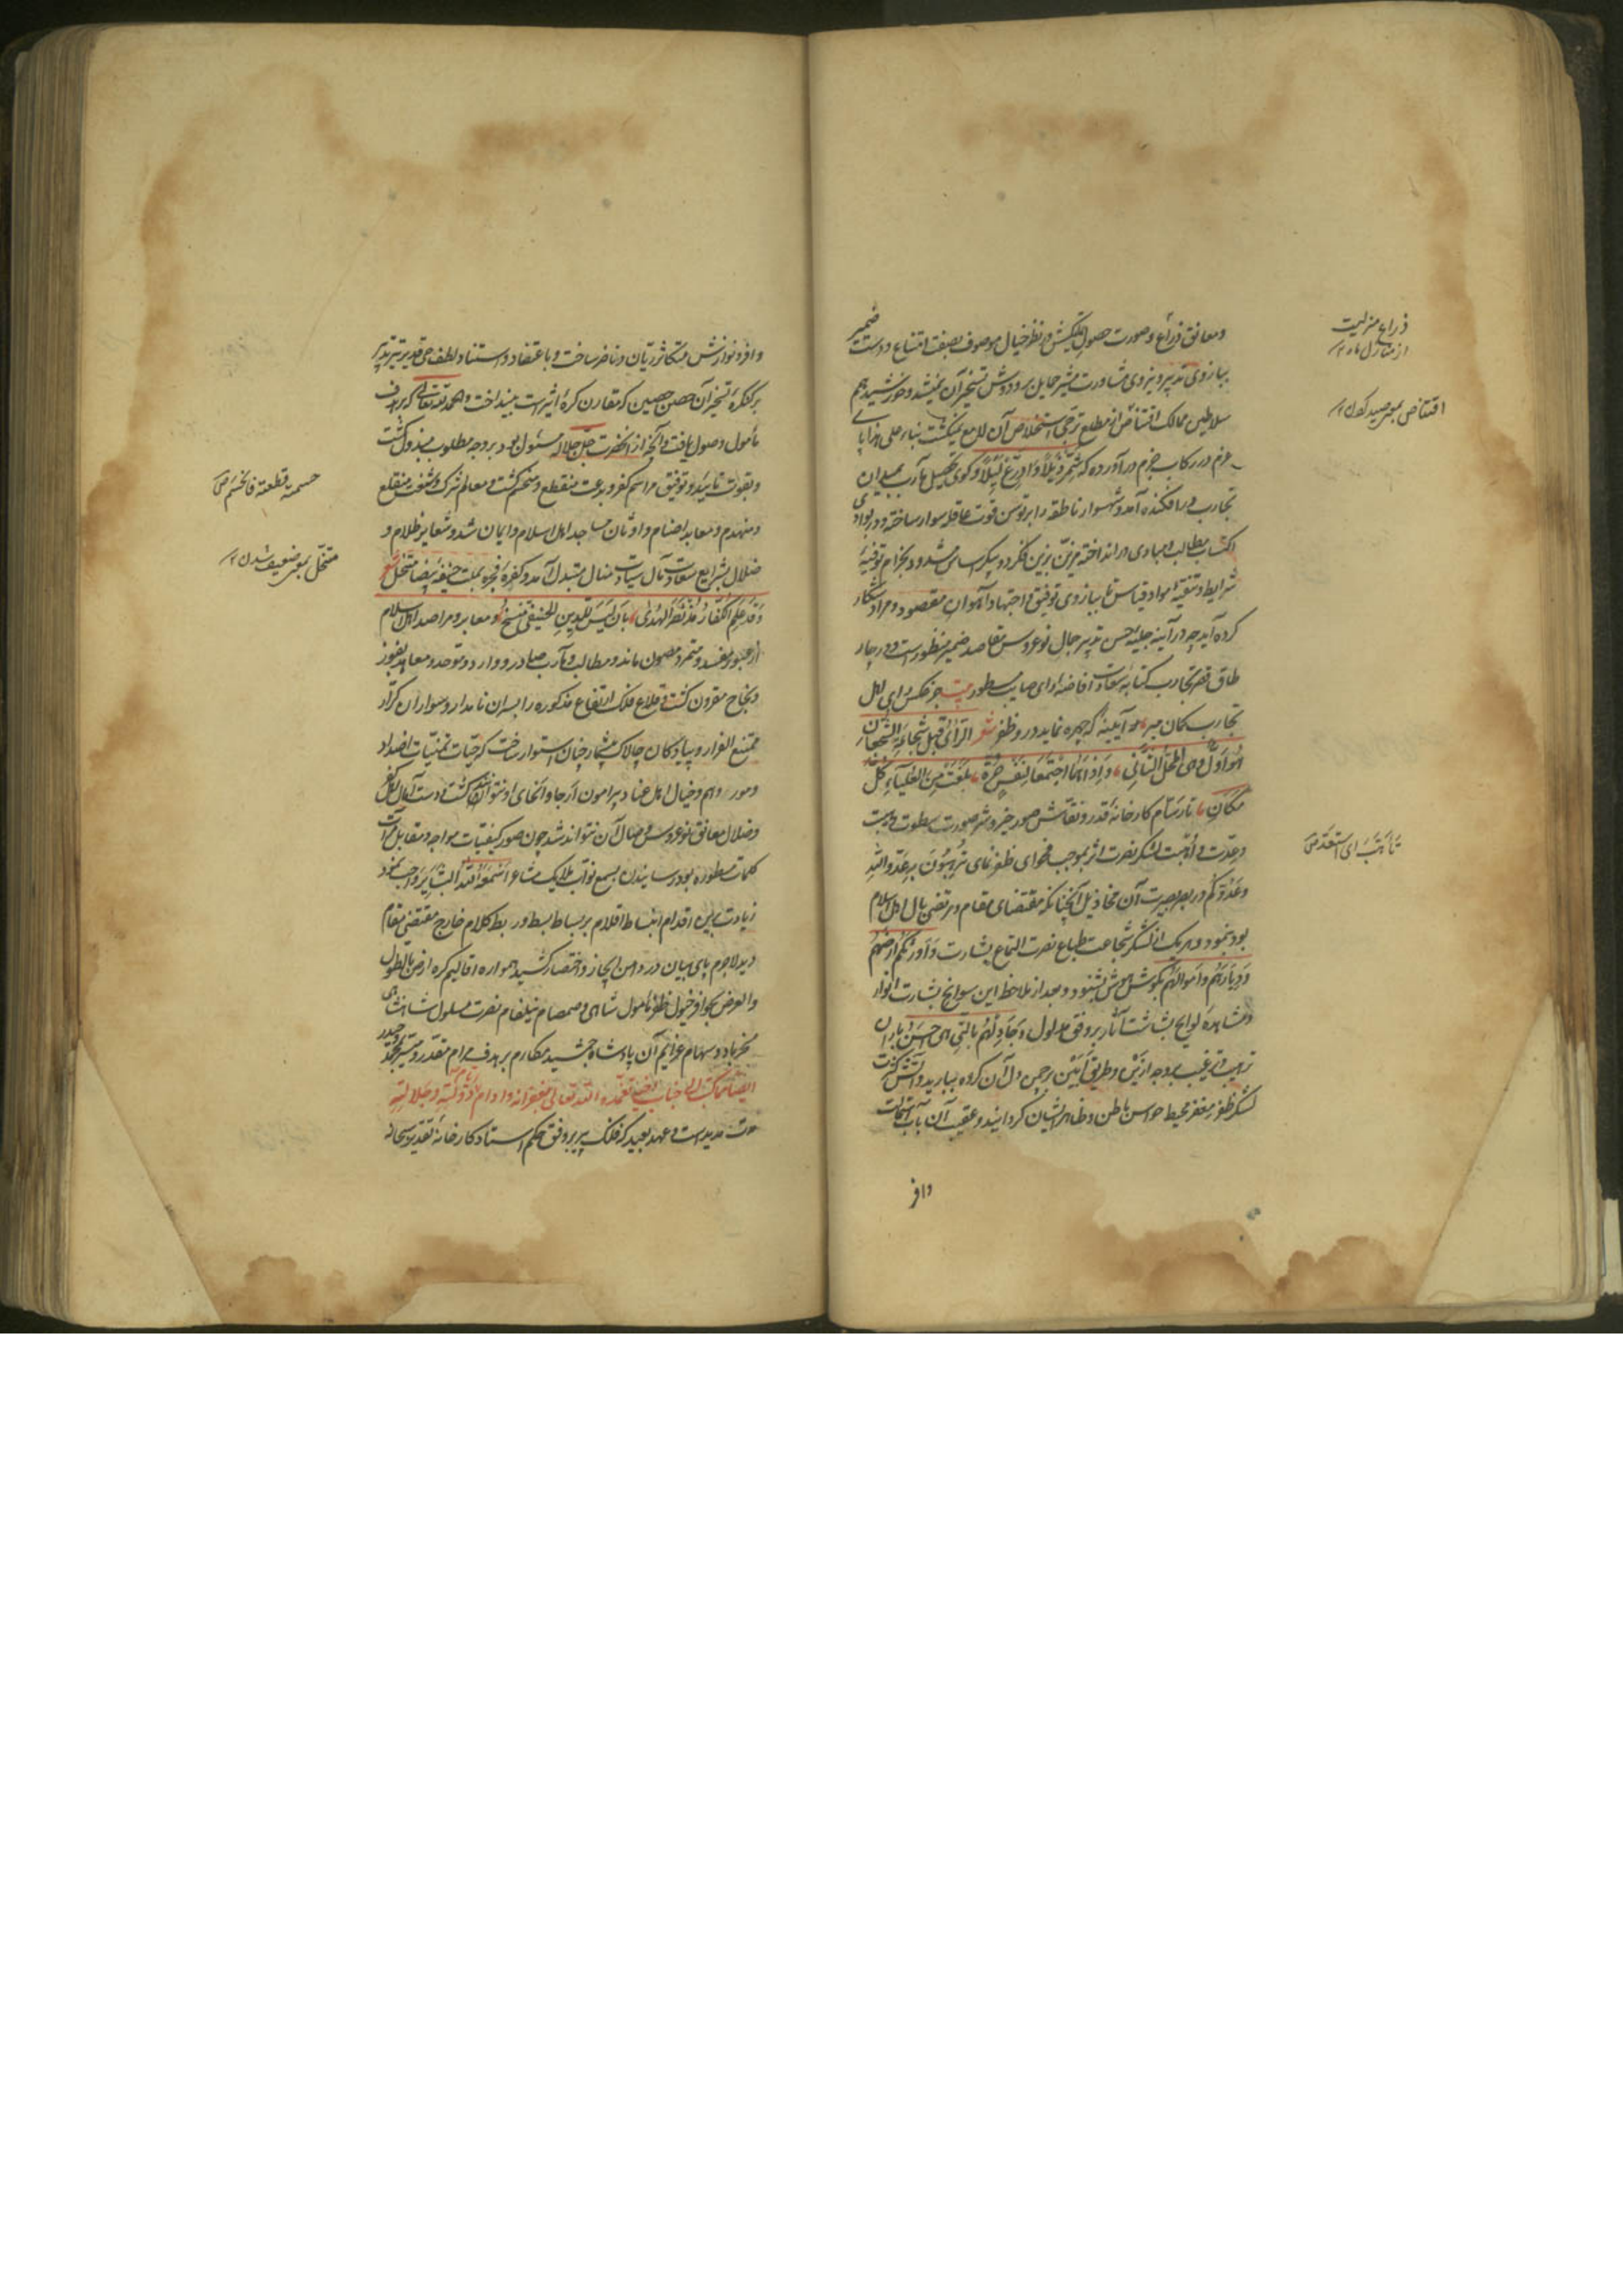 ومعانق ذراع و صورت حصول تملکش در نظر خیال موصوف بصفت امتناع و دست ضمیر
ببازوی تدبیر و نیروی مشاورت مشیر حمایل بر دوش تسخیر آن نمیشد و خورشید هم
سلاطین ممالک اقتناص از مطلع ترجی استخلاص آن لامع نمیگشت بناء علی هذا پای
عزم در رکاب جزم در آورده که شمر ذیلا و ادرع لیلا و گوی تحصیل مآرب بمیدان
تجارب در افکنده آمد و شهسوار ناطقه را بر توسن قوت عاقله سوار ساخته و در بوادی
اکتساب مطالب و مبادی در انداخته مزین بزین فکر و دو پیکر اساس شد و بحزام توفیه
شرایط و تنقیه مواد قیاس تا ببازوی توفیق و اجتهاد آهوان مقصود و مراد شکار
کرده آید چه در آینه جلیه حسن تدبیر جمال نوعروس مقاصد ضمیر منظور است و در چهار
طاق قصر تجارب کتابه سعادت افاضه ارای صایب مسطور بیت جز فکس رای اهل
تجارب کمان مبر، هر آیینه که چهره نماید در و ظفر شعر الرای قبل شجاعة الشجعان
هو اول وهی المحل الثانی، و اذا هما اجتمعا لنفس حرة، بلغت من العلیاء کل
مکان، تا رسام کارخانه قدر و نقاش صور خیر و شر صورت سطوت و هیبت
وعدت و اهبت لشکر نصرت اثر بموجب فحوای ظفر نمای ترهبون به عدو الله
وعدوکم در بصر بصیرت آن مخاذیل آنچنانکه مقتضای مقام و مرتضی بال اهل اسلام
بود بنمود و هر یک از لشکر شجاعت طباع نصرت التماع بشارت و اورثکم ارضهم
و دیارهم و اموالهم بگوش هوش بشنود و بعد از ملاحظه این سوانح بشارت انوار
و مشاهده لوایح بشاشت آثار بر وفق مدلول و جادلهم بالتی هی احسن باران
ترهیب و ترغیب بر وجه ازین و طریق ابین بر چمن دل آن گروه ببارید و آتش کثرت
لشکر ظفر مغفر محیط حواس باطن و ظاهر ایشان گردانید و عقیب آن بآب استمالت
وافر
ذراع منزلیست
از منازل ماه ۱۲
اقتناص بمعنی صید کردن ۱۲
تأهب ای استعد ص
وافر و نوازش متکاثر ریان و ناضر ساخت و با اعتقاد و استناد لطف حی قدیر تیر تدبیر
بر کنگره تسخیر آن حصن حصین که مقارن کره اثیر است بینداخت و الحمد لله تعالی که بر هدف
مأمول وصول یافت و آنچه از آنحضرت جل جلاله مسئول بود بر وجه مطلوب مبذول گشت
و بقوت تایید و توفیق مراسم کفر و بدعت منقطع و منحسم گشت و معالم شرک و شنعت منقلع
و منهدم و معابد اصنام و اوثان مساجد اهل اسلام و ایمان شد و شعایر ظلام و
ضلال بشرایع سعادت مآل سیادت منال متبدل آمد و کفره فجره بملت حنیفه بیضا متحل شعر
وقد علم الکفار مذ نصر الهدی، بان لیس للدین الحنیفی منسخ، و معابر و مراصد اهل اسلام
از عبور مفسد و متمرد مصون ماند و مطالب و مآرب صادر و وارد و متوحد و معاهد بفوز
و نجاح مقرون گشت و قلاع فلک ارتفاع مذکوره را بسران نامدار و سواران کرار
ممتنع الفرار و پیادگان چالاک بیشمار چنان استوار ساخت که حیات تمنیات اضداد
و مور وهم و خیال اهل عناد پیرامون ارجا و انحای او نتوانند گشت و دست آمال اهل کفر
و ضلال معانق نوعروس وصال آن نتواند شد چون صور کیفیات مواجه و مقابل مرآت
کلمات مسطوره بود رسانیدن بسمع نواب ملایک مشاعر اسمعه الله البشایر واجب نمود
زیادت برین اقدام انبساط اقلام بر بساط بسط و ربط کلام خارج مقتضی مقام
دید لاجرم پای بیان در دامن ایجاز و اختصار کشید همواره اقالیم کره ارض بالطول
والعرض بحوافر خیول ظفر مأمول شاهی و صمصام نیلفام نصرت مسلول شاهنشاهی
مسخر باد و سهام عزایم آن پادشاه جمشید مکارم بر هدف مرام مقدر و میسر بمحمد و حیدر
ایضا مما کتب الی جناب تغمده الله تعالی بغفرانه و ادام دولته و جلالته
مدت مدید است و عهد بعید که فلک پیر بر وفق حکم استاد کارخانه تقدیر سبحانه
حسمته قطعته فانحسم ص
متحل بمعنی ضعیف شدن ۱۲